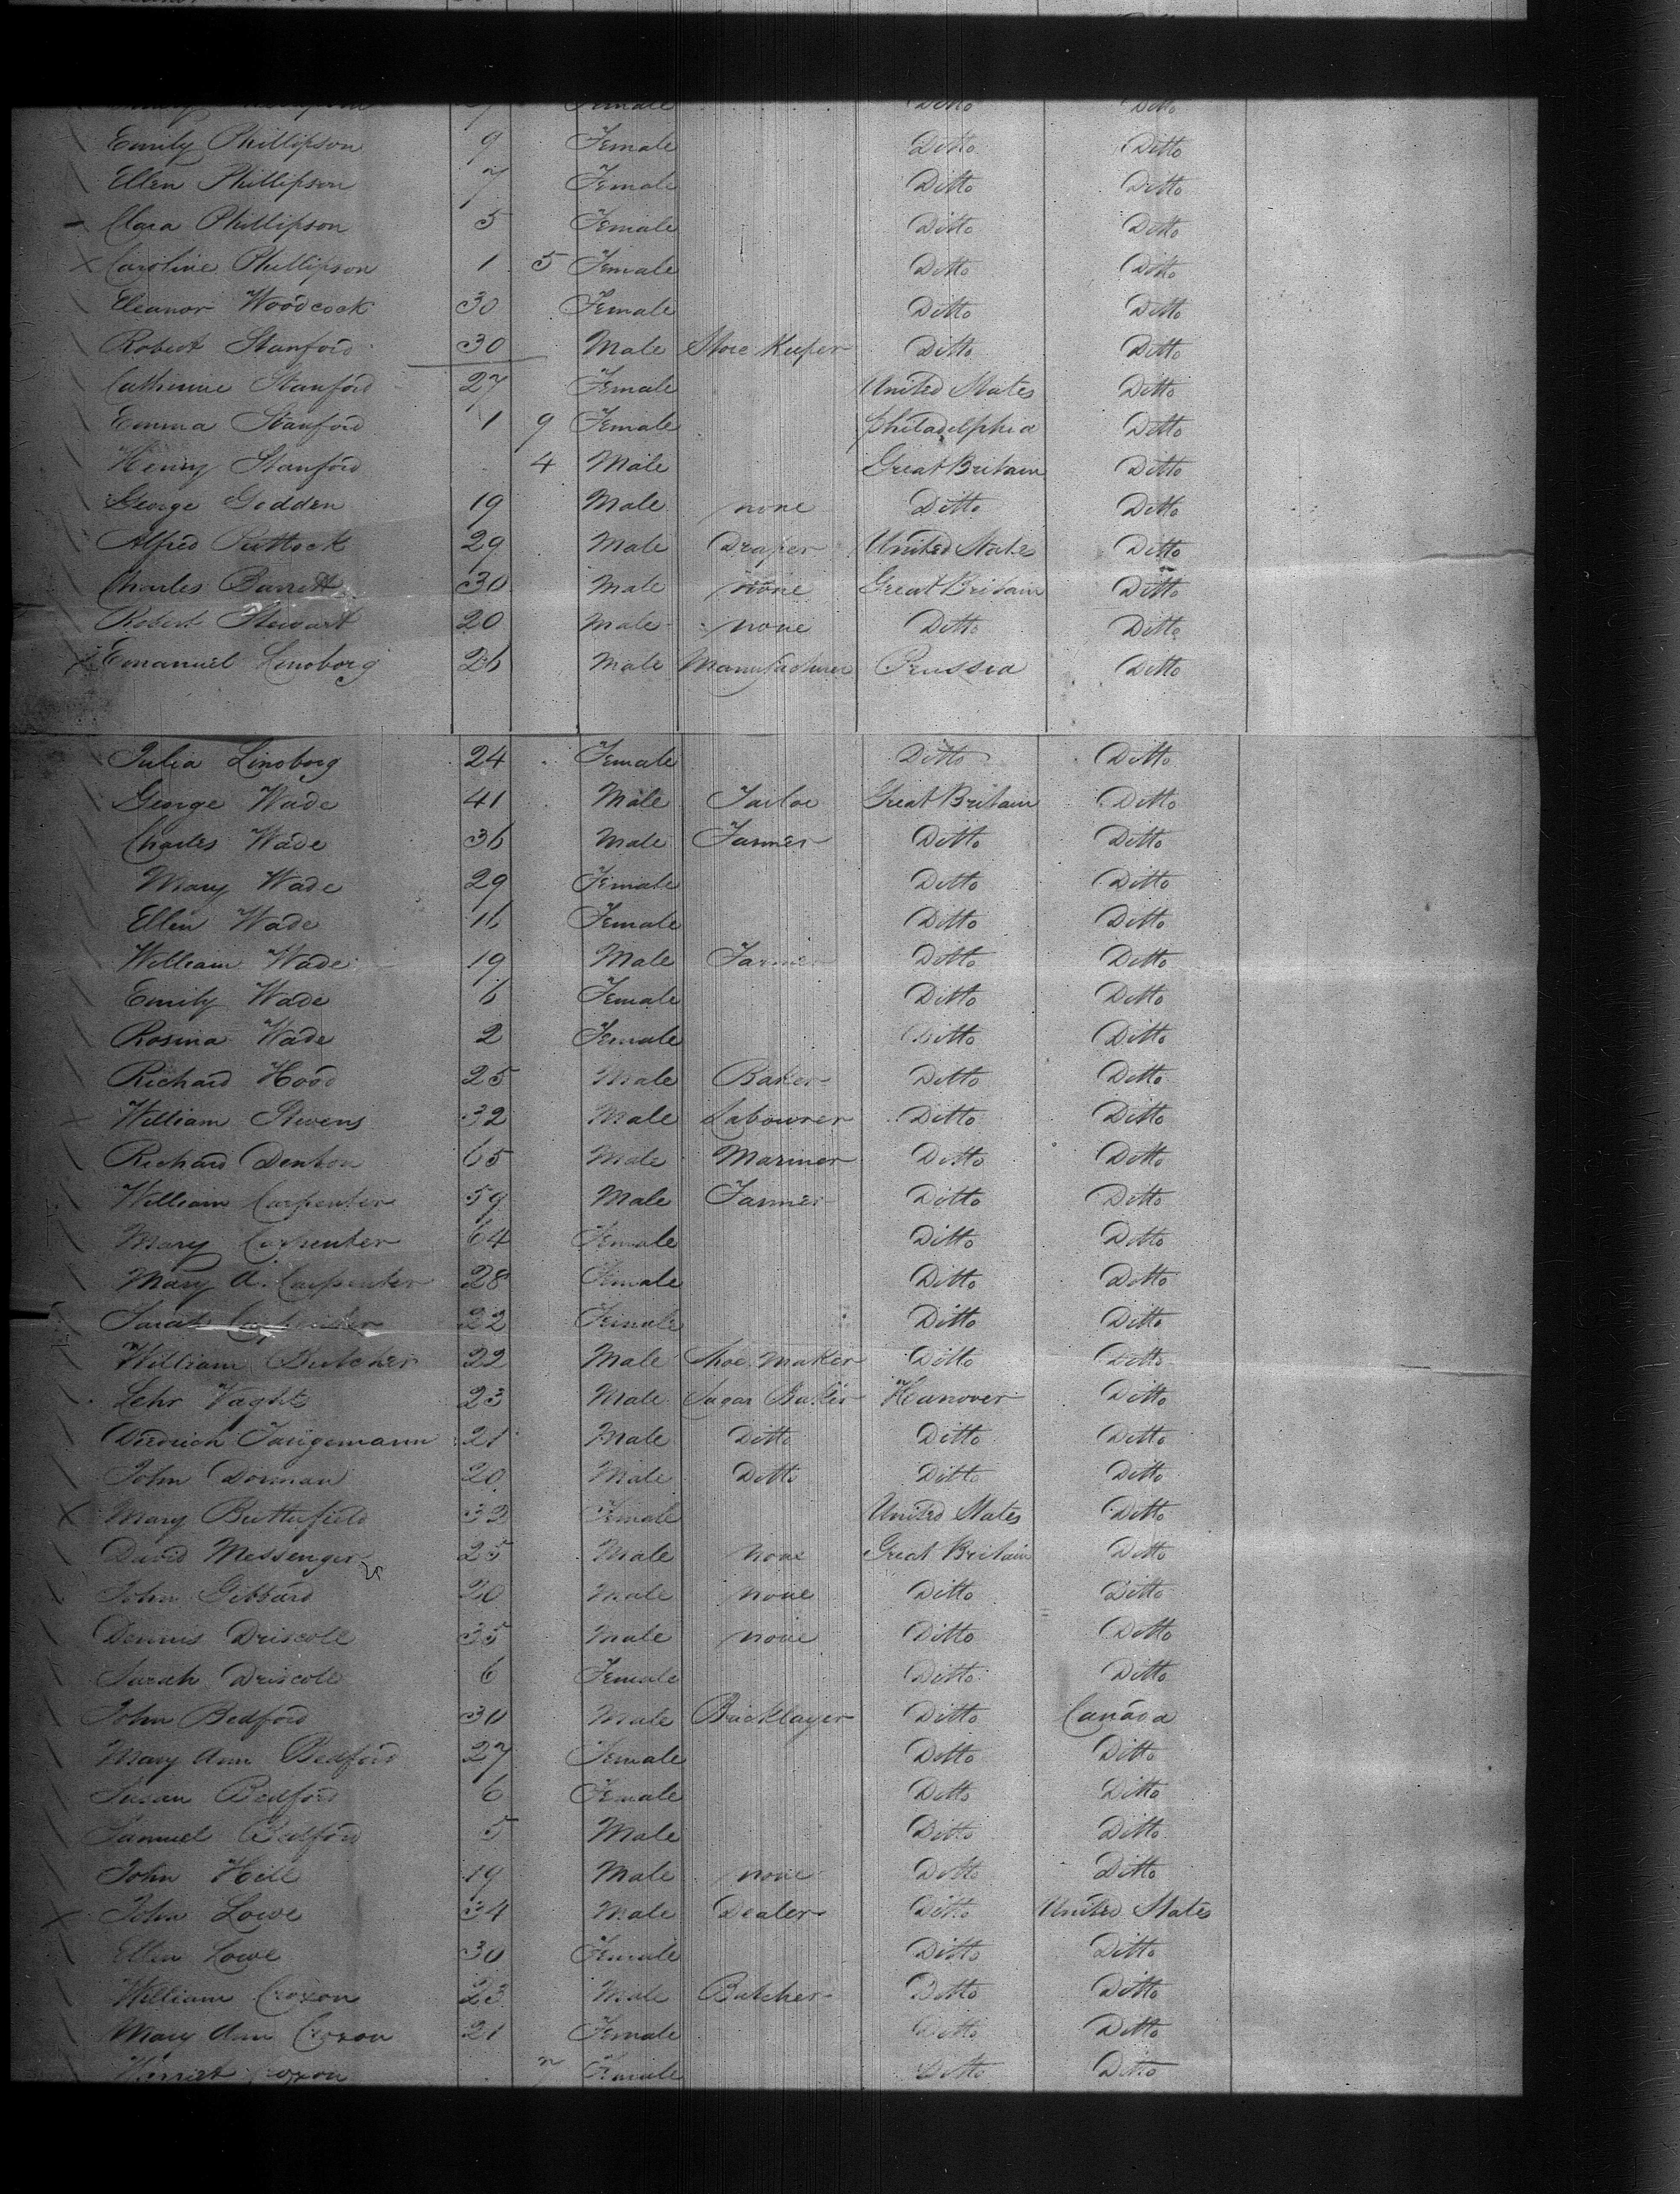 Female Ditto Ditto
Emily Phillipson 9 Female Ditto Ditto
Ellen Phillipson 7 Female Ditto Ditto
Clara Phillipson 5 Female Ditto Ditto
Caroline Phillipson 1 5 Female Ditto Ditto
Eleanor Woodcock 30 Female Ditto Ditto
Robert Stanford 30 Male Store Keeper Ditto Ditto
Catherine Stanford 27 Female United States Ditto
Emma Stanford 1 9 Female Philadelphia Ditto
Henry Stanford 4 Male Great Britain Ditto
George Godden 19 Male none Ditto Ditto
Alfred Puttock 29 Male Draper United States Ditto
Charles Barrett 30 Male none Great Britain Ditto
Robert Stewart 20 Male none Ditto Ditto
Emanuel Linoborg 26 Male Manufacturer Prussia Ditto
Julia Linoborg 24 Female Ditto Ditto
George Wade 41 Male Tailor Great Britain Ditto
Charles Wade 36 Male Farmer Ditto Ditto
Mary Wade 29 Female Ditto Ditto
Ellen Wade 16 Female Ditto Ditto
William Wade 19 Male Farmer Ditto Ditto
Emily Wade 6 Female Ditto Ditto
Rosina Wade 2 Female Ditto Ditto
Richard Hood 25 Male Baker Ditto Ditto
William Stevens 32 Male Labourer Ditto Ditto
Richard Denton 65 Male Mariner Ditto Ditto
William Carpenter 59 Male Farmer Ditto Ditto
Mary Carpenter 64 Female Ditto Ditto
Mary A. Carpenter 28 Female Ditto Ditto
Sarah Carpenter 22 Female Ditto Ditto
William Butcher 22 Male Shoe Maker Ditto Ditto
Lehr Vaghts 23 Male Sugar Baker Hanover Ditto
Diedrich Tangemann 21 Male Ditto Ditto Ditto
John Dorman 20 Male Ditto Ditto Ditto
Mary Butterfield 32 Female United States Ditto
David Messenger 25 Male none Great Britain Ditto
John Gibbard 20 Male none Ditto Ditto
Dennis Driscoll 35 Male none Ditto Ditto
Sarah Driscoll 6 Female Ditto Ditto
John Bedford 30 Male Bricklayer Ditto Canada
Mary Ann Bedford 27 Female Ditto Ditto
Susan Bedford 6 Female Ditto Ditto
Samuel Bedford 5 Male Ditto Ditto
John Hill 19 Male none Ditto Ditto
John Lowe 34 Male Dealer Ditto United States
Ellen Lowe 30 Female Ditto Ditto
William Croxon 23 Male Butcher Ditto Ditto
Mary Ann Croxon 21 Female Ditto Ditto
Harriet Croxon 7 Female Ditto Ditto